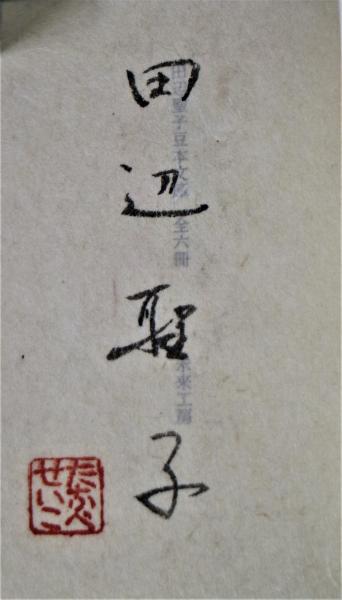 田辺聖子
田辺聖子豆本文庫 全六冊 未来工房
たなべ
せいこ